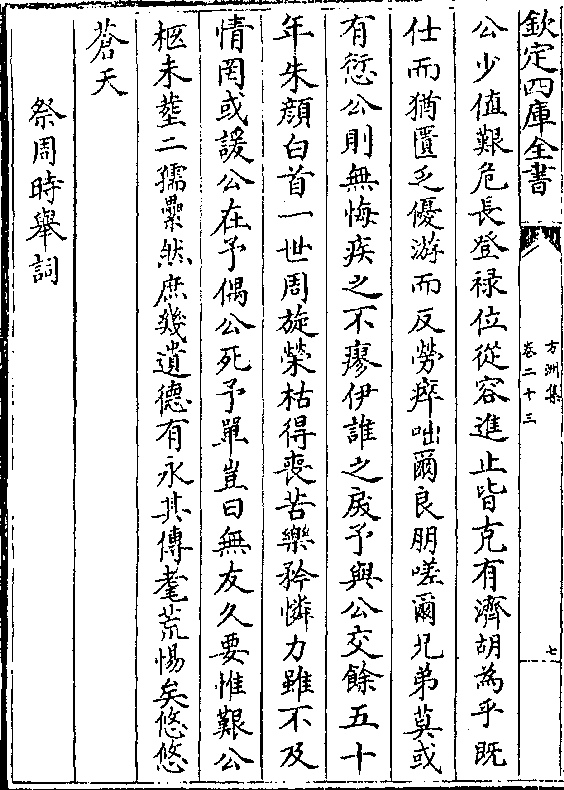 欽定四庫全書
方洲集
卷二十三
七
公少值艱危長登禄位從容進止皆克有濟胡為乎既
仕而猶匱乏優游而反勞瘁咄爾良朋嗟爾兄弟莫或
有愆公則無悔疾之不瘳伊誰之戾予與公交餘五十
年朱顔白首一世周旋榮枯得喪苦樂矜憐力雖不及
情罔或諼公在予偶公死予單豈曰無友久要惟艱公
柩未塟二孺纍然庶幾遺德有永其傳耄荒惕矣悠悠
蒼天
祭周時舉詞